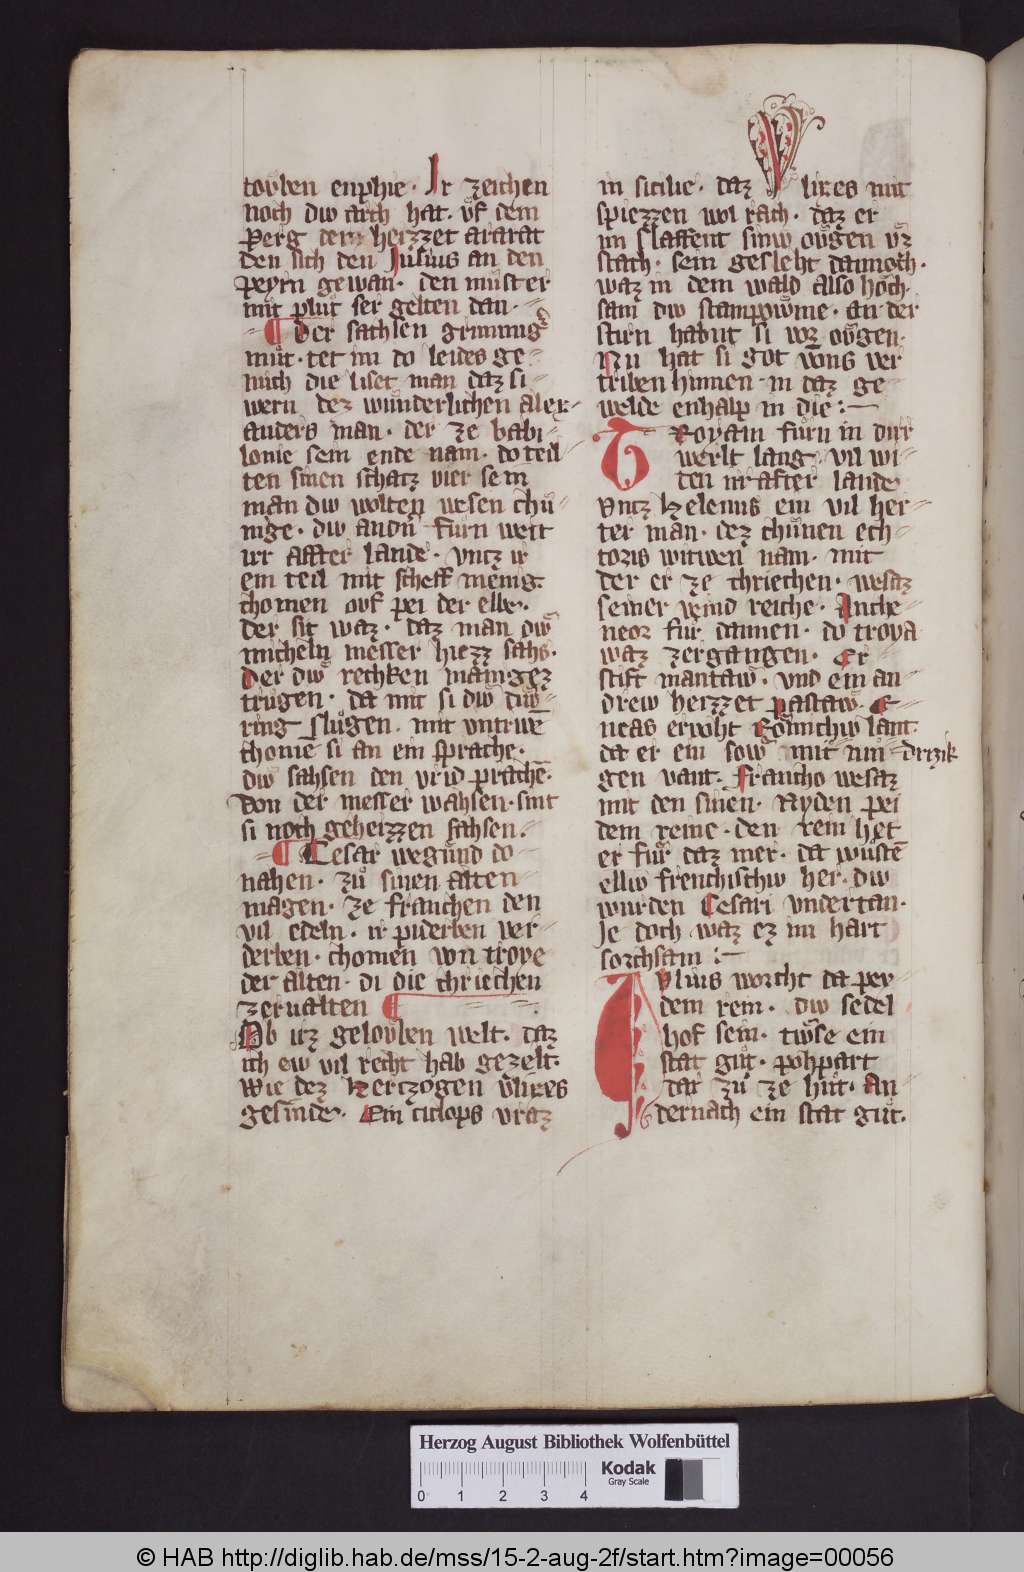 toͮben enphie. Ir zeichen
noch diw arch hat. vf dem
perg der heizzet ararat
den sich den Julius an den
peyrn gewan. den muͦster
mit pluͦt ser gelten dan.
Der sachsen grimmig
muͦt. tet im do leides ge
nuch die liset man daz si
wern dez wunderlichen alex
anders man. der ze babi
lonie sein ende nam. do teil
ten sinen schatz vier sein
man diw wolten wesen chuͦ
nige. diw andn̄ fuͦrn weit
irr affter lande. vntz ir
ein teil mit scheff menig
chomen ouf pei der elbe.
der sit waz. daz man diw
micheln messer hiezz sahs.
Der diw rechken manigez
truͦgen. da mit si diw duͦ
ring sluͦgen. mit vntrwe
chome si an ein sprache.
diw sahsen den vrid prachē.
Von der messer wahsen. sint
si noch geheizzen sahsen.
Cesar weguͦnd do
nahen. zuͦ sinen alten
magen. ze franchen den
vil edeln. ir piderben ver
derben. chomen von troye
der alten. di die chriechen
zervalten
Ob irz geloͮben welt. daz
ich ew vil recht hab gezelt.
Wie dez Hertzogen vlixes
gesinde. Ein ciclops vraz
in sicilie. daz Vlixes mit
spiezzen wol rach. daz er
im slaffent sinw oͮgen vz
stach. sein gesleht dannoch.
waz in dem wald also hoch.
sam diw stampowme. an der
stirn habnt si vor oͮgen.
Nu hat si got vons ver
triben hinnen. in daz ge
welde enhalp in die :
Troyani fuͦrn in dirr
werlt lang. vil wi
ten irr after lande
Vntz Helenus ein vil her
ter man. dez chuͦnen ech
toris witwen nam. mit
der er ze chriechen. wesaz
seiner veind reiche. Anthe
neor fuͦr dannen. do troya
waz zergangen. Er
stift mantaw. vnd ein an
drew heizzet pastaw. E
neas ervoht Roͤmischw lant.
da er ein sow mit iun drizik
gen vant. Francho wesaz
mit den sinen. Nyden pei
dem reine. den rein het
er fuͦr daz mer. da wuͦstē
ellw frenchischw her. diw
wurden Cesari vndertan.
Je doch waz ez im hart
sorchsam :
IVlius worcht da pey
dem rein. diw sedel
hof sein. twͦse ein
stat guͦt. pohpart
dar zuͦ ze huͦt. An
dernach ein stat guͦt.
Herzog August Bibliothek Wolfenbüttel
Kodak
Gray Scale
0 1 2 3 4
© HAB http://diglib.hab.de/mss/15-2-aug-2f/start.htm?image=00056